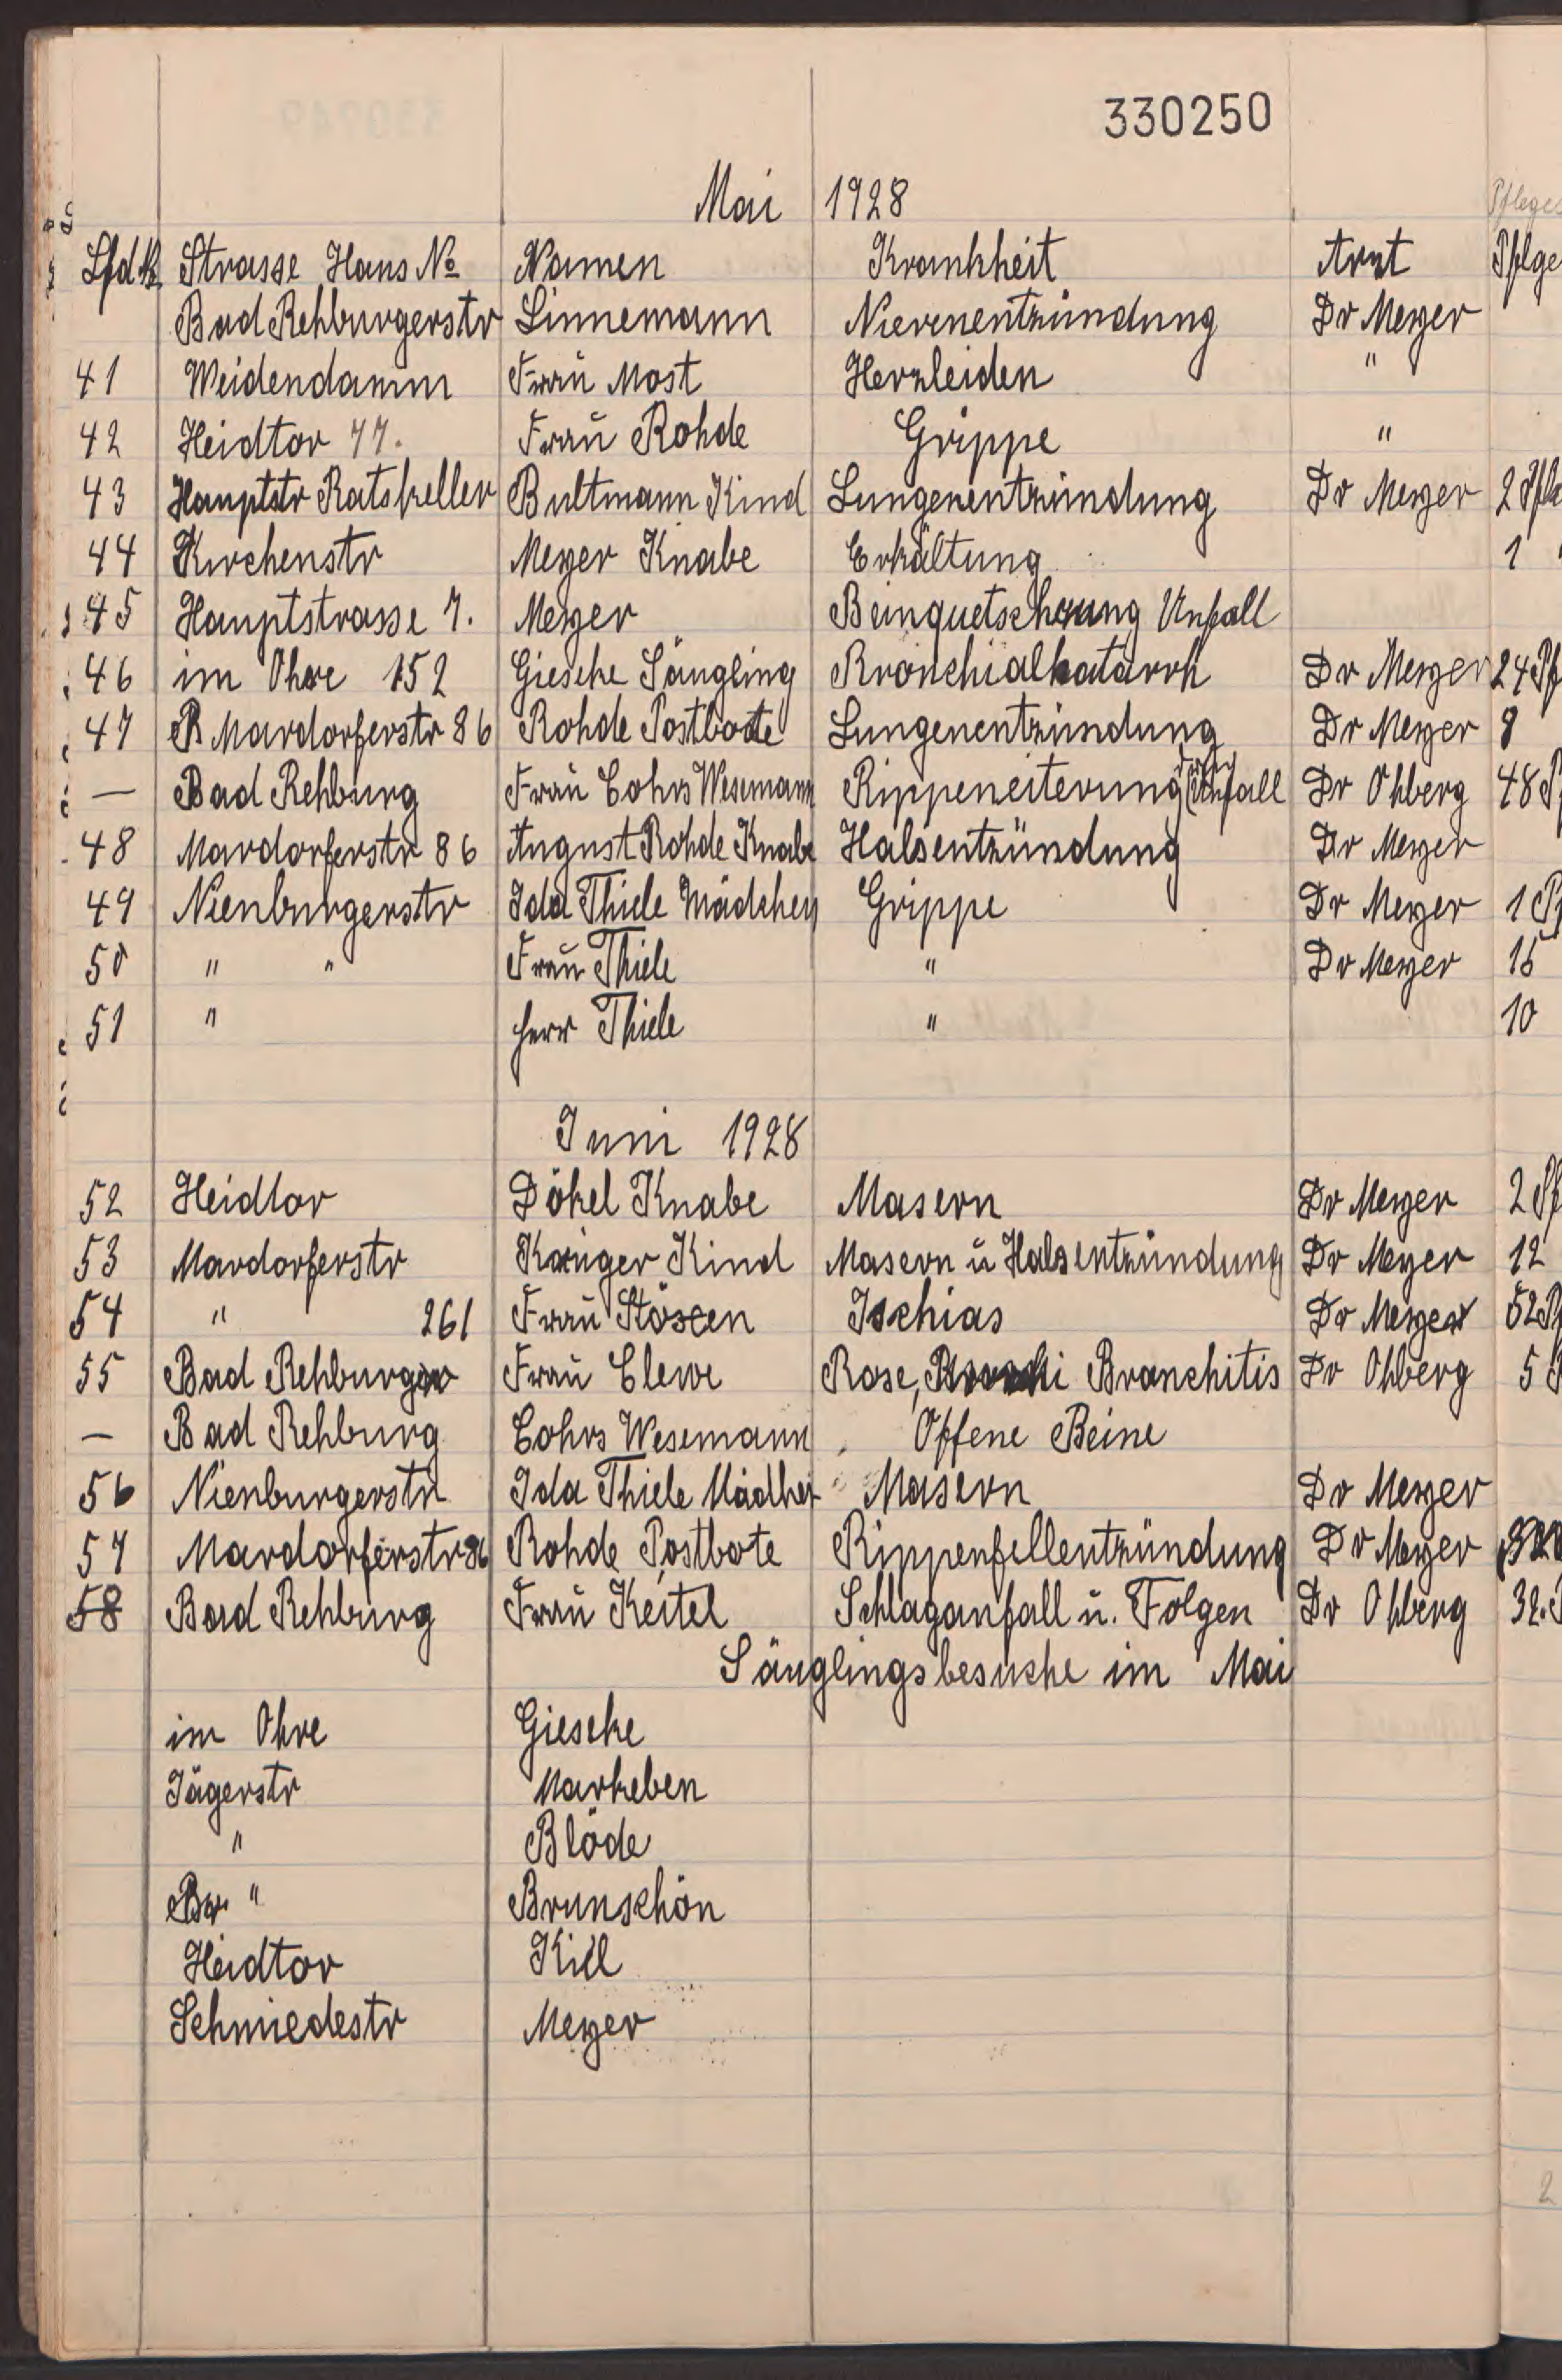 330250
Mai 1928
Pfleges
Lfd № Strasse Haus № Namen Krankheit Arzt Pflge
Bad Rehburgerstr Linnemann Nierenentzündung Dr Meyer
41 Weidendamm Frau Most Herzleiden "
42 Heidtor 77. Frau Rohde Grippe "
43 Hauptstr Ratskeller Bultmann Kind Lungenentzündung Dr Meyer 2 Pfle
44 Kirchenstr Meyer Knabe Erkältung 1
45 Hauptstrasse 7. Meyer Beinquetschung Unfall
46 im Ohre 152 Gieseke Säugling Bronchialkatarrh Dr Meyer 24 Pf
47 Mardorferstr 86 Rohde Postbote Lungenentzündung Dr Meyer 8
— Bad Rehburg Frau Cohrs Wesemann Rippeneiterung Unfall Dr Ohberg 48 P
48 Mardorferstr 86 August Rohde Knabe Halsentzündung Dr Meyer
49 Nienburgerstr Ida Thiele Mädchen Grippe Dr Meyer 1 Pf
50 " " Frau Thiele " Dr Meyer 15
51 " Herr Thiele " 10
Juni 1928
52 Heidtor Dökel Knabe Masern Dr Meyer 2 Pf
53 Mardorferstr Krüger Kind Masern u Halsentzündung Dr Meyer 12
54 " 261 Frau Stöscen Ischias Dr Meyer 52 P
55 Bad Rehburg Frau Clewe Rose, Bronchitis Dr Ohberg 5 P
— Bad Rehburg Cohrs Wesemann Offene Beine
56 Nienburgerstr Ida Thiele Mädhen Masern Dr Meyer
57 Mardorferstr 86 Rohde Postbote Rippenfellentzündung Dr Meyer
58 Bad Rehburg Frau Keitel Schlaganfall u. Folgen Dr Ohberg 32. P
Säuglingsbesuche im Mai
im Ohre Gieseke
Jägerstr Markeben
" Blöde
" Brunschön
Heidtor Kiel
Schmiedestr Meyer
2